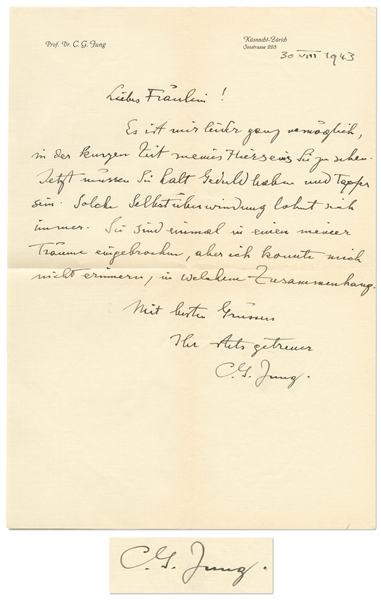 Prof. Dr. C. G. Jung
Küsnacht-Zürich
Seestrasse 228
30 VIII 1943
Liebes Fräulein!
Es ist mir leider ganz unmöglich,
in der kurzen Zeit meines Hierseins Sie zu sehen.
Jetzt müssen Sie halt Geduld haben und tapfer
sein. Solche Selbstüberwindung lohnt sich
immer. Sie sind einmal in einen meiner
Träume eingebrochen, aber ich konnte mich
nicht erinnern, in welchem Zusammenhang.
Mit besten Grüssen
Ihr stets getreuer
C. G. Jung.
C. G. Jung.